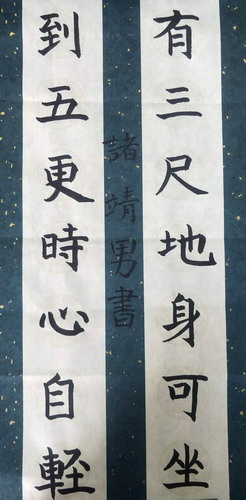 有三尺地身可坐
到五更時心自輕
諸靖男書